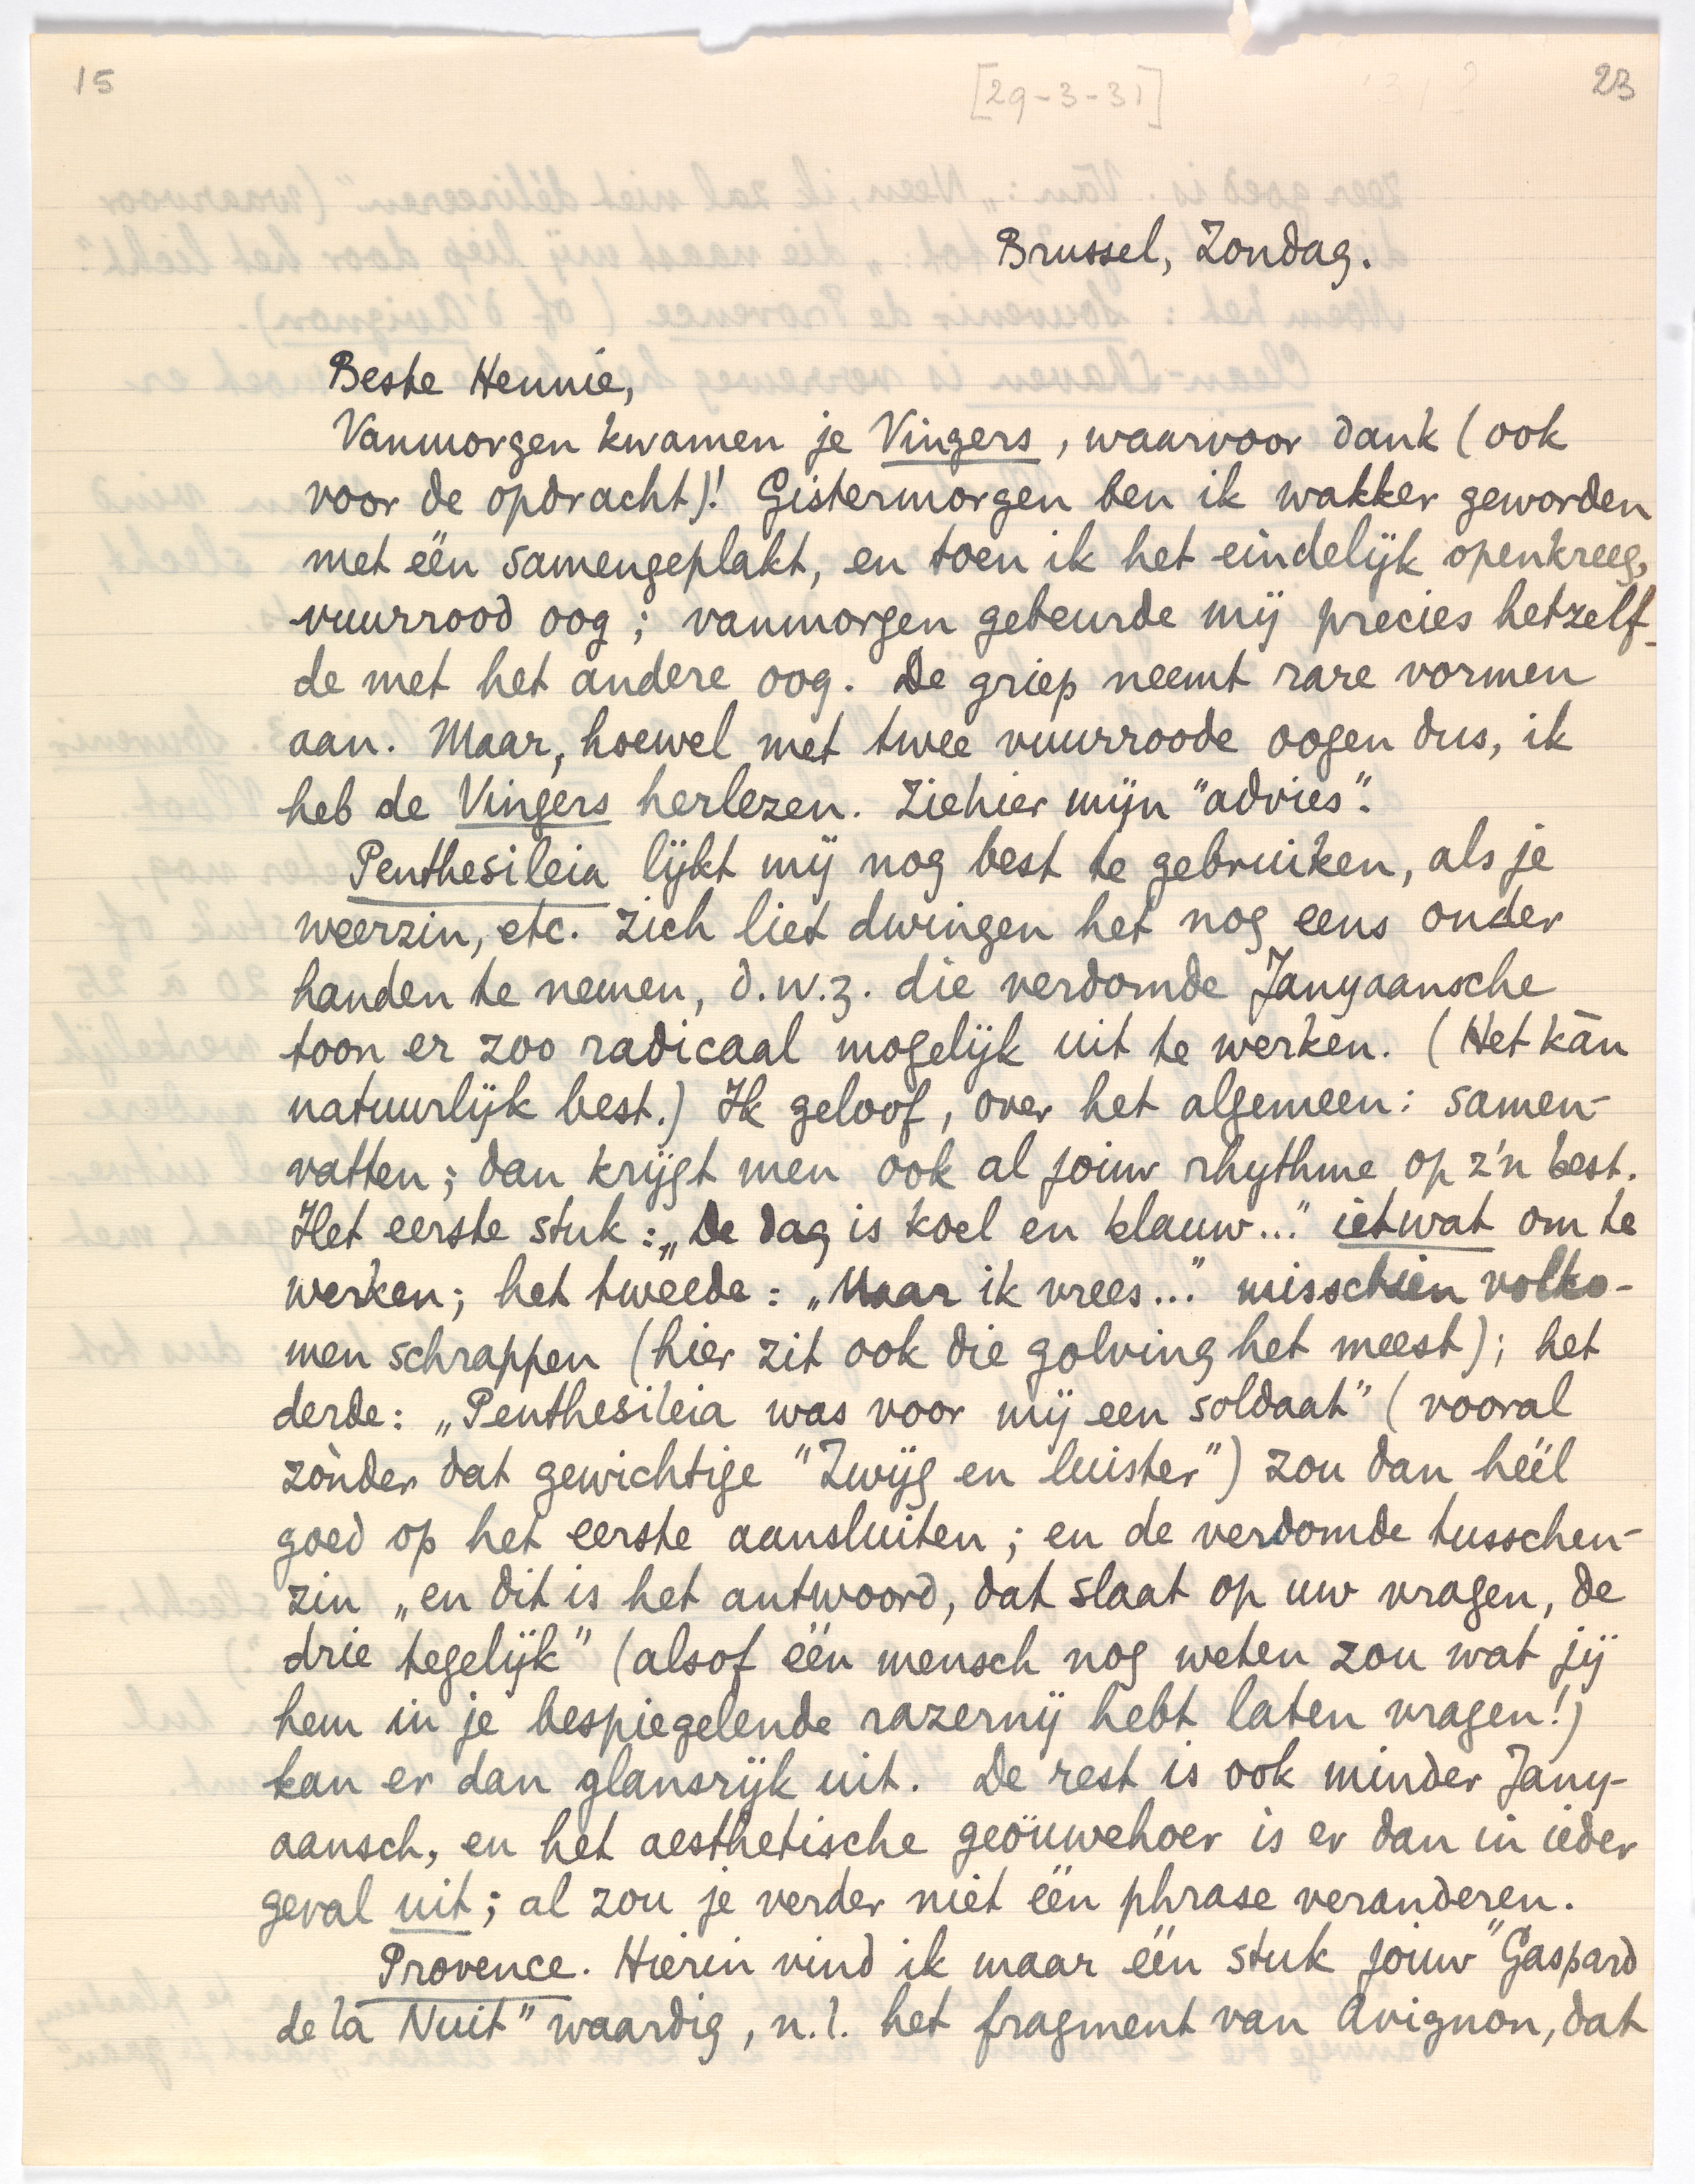 15
[29-3-31]
23
Brussel, Zondag.
Beste Hennie,
Vanmorgen kwamen je Vingers, waarvoor dank (ook
voor de opdracht)! Gistermorgen ben ik wakker geworden
met één samengeplakt, en toen ik het eindelijk openkreeg,
vuurrood oog; vanmorgen gebeurde mij precies hetzelf-
de met het andere oog. De griep neemt rare vormen
aan. Maar, hoewel met twee vuurroode oogen dus, ik
heb de Vingers herlezen. Ziehier mijn "advies".
Penthesileia lijkt mij nog best te gebruiken, als je
weerzin, etc. zich liet dwingen het nog eens onder
handen te nemen, d.w.z. die verdomde Janyaansche
toon er zoo radicaal mogelijk uit te werken. (Het kàn
natuurlijk best.) Ik geloof, over het algemeen: samen-
vatten; dan krijgt men ook al jouw rhythme op z'n best.
Het eerste stuk: „De dag is koel en klauw..." ietwat om te
werken; het tweede: „Maar ik vrees..." misschien volko-
men schrappen (hier zit ook die golving het meest); het
derde: „Penthesileia was voor mij een soldaat" (vooral
zònder dat gewichtige "Zwijg en luister") zou dan héél
goed op het eerste aansluiten; en de verdomde tusschen-
zin „en dit is het antwoord, dat slaat op uw vragen, de
drie tegelijk" (alsof één mensch nog weten zou wat jij
hem in je bespiegelende razernij hebt laten vragen!)
kan er dan glansrijk uit. De rest is ook minder Jany-
aansch, en het aesthetische geöuwehoer is er dan in ieder
geval uit; al zou je verder niet één phrase veranderen.
Provence. Hierin vind ik maar één stuk jouw "Gaspard
de la Nuit" waardig, n.l. het fragment van Avignon, dat